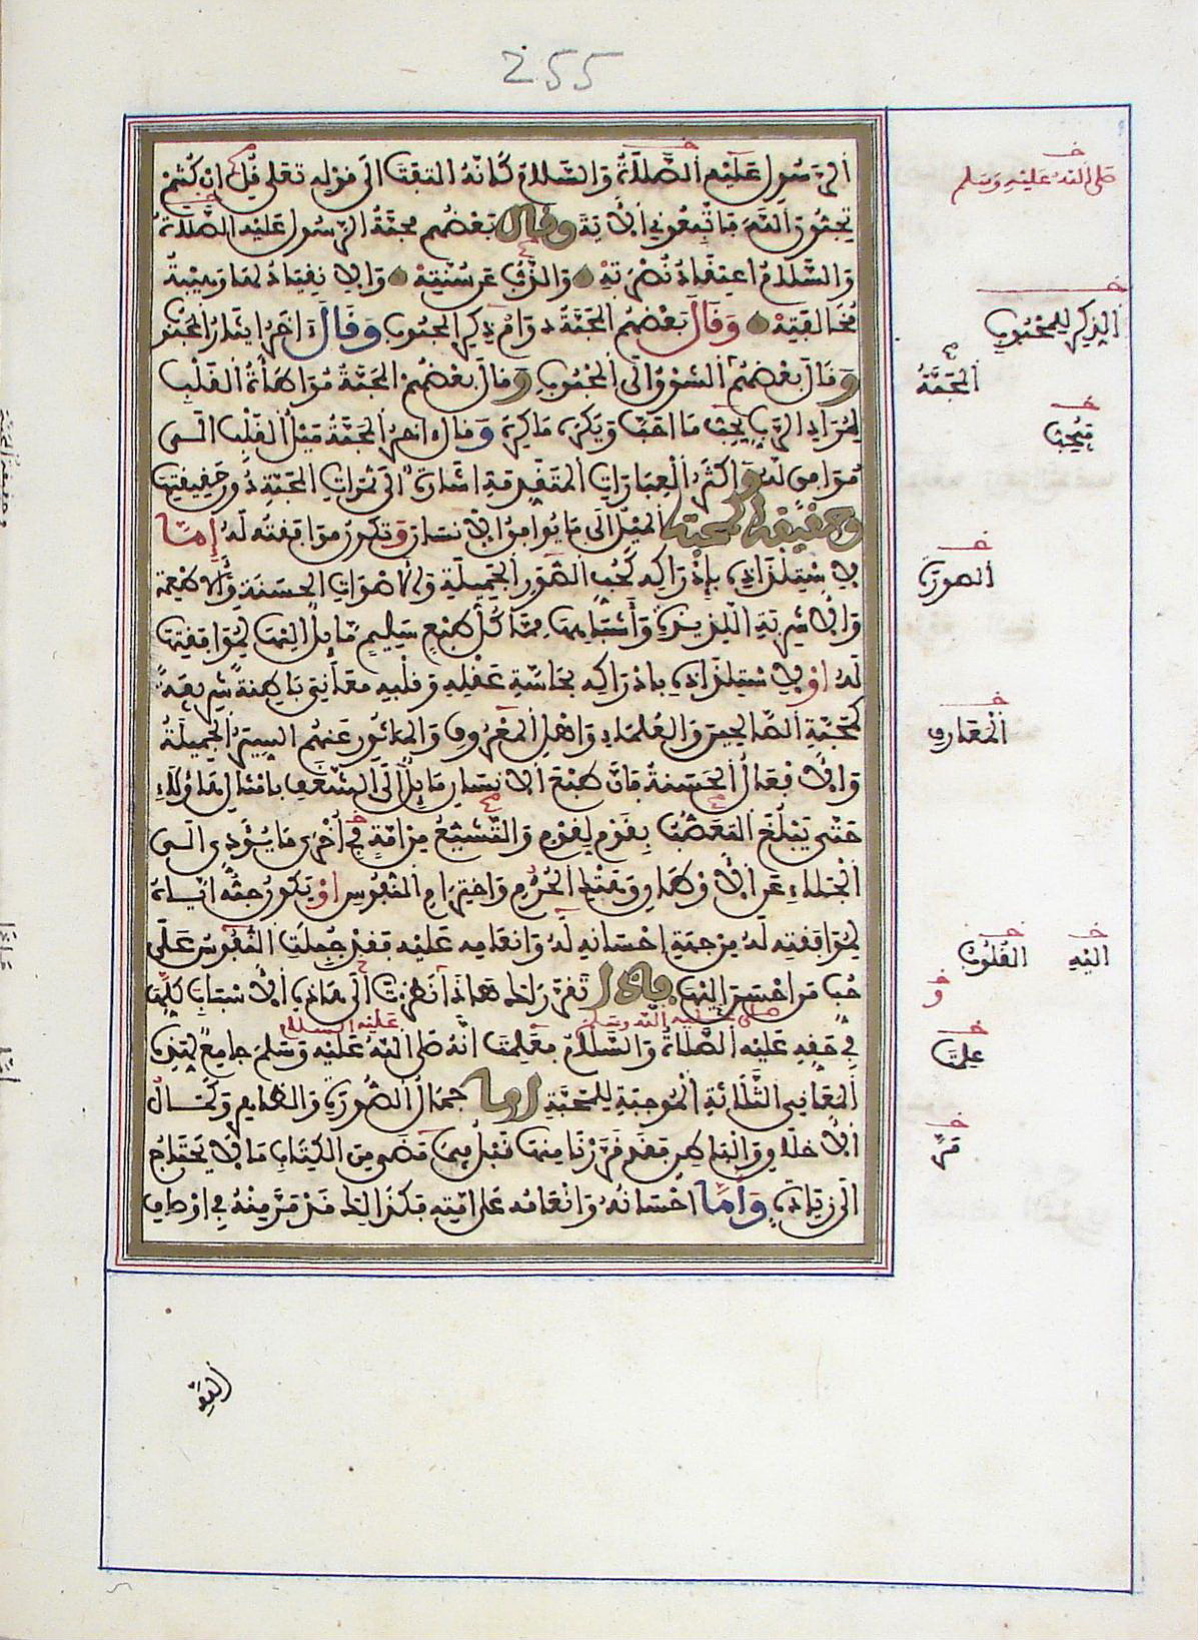 255
الرسول عليه الصلاة والسلام كأنه التفت الى قوله تعلى قل ان كنتم
تحبون الله فاتبعوني الاية وقال بعضهم محبة الرسول عليه الصلاة
والسلام اعتقاد نصرته والذب عن سنته والانقياد لها وهيبة
مخالفته وقال بعضهم المحبة دوام ذكر المحبوب وقال اخر ايثار المحبوب
وقال بعضهم الشوق الى المحبوب وقال بعضهم المحبة مواطأة القلب
لمراد الرب يحب ما احب ويكره ما كره وقال اخر المحبة ميل القلب الى
موافق له واكثر العبارات المتقدمة اشارة الى ثمرات المحبة دون حقيقتها
وحقيقة المحبة الميل الى ما يوافق الانسان وتكون موافقته له إما
لاستلذاذه بإدراكه كحب الصور الجميلة والاصوات الحسنة والاطعمة
والاشربة اللذيذة وأشباهها مما كل طبع سليم مايل اليها لموافقتها
له او لاستلذاذه بادراكه بحاسة عقله وقلبه معاني باطنة شريفة
كمحبة الصالحين والعلماء واهل المعروف والماثور عنهم السير الجميلة
والافعال الحسنة فان طبع الانسان مايل الى الشغف بامثال هاؤلاء
حتى يبلغ التعصب بقوم لقوم والتشيع من امة في أخرى ما يؤدي الى
الجلاء عن الاوطان وهتك الحرم واخترام النفوس او يكون حبه اياه
لموافقته له من جهة إحسانه له وانعامه عليه فقد جبلت النفوس على
حب من احسن اليها فاذا تقرر لك هذا نظرت الى هذه الاسباب كلها
صلى الله عليه وسلم
عليه السلام
في حقه عليه الصلاة والسلام فعلمت انه صلى الله عليه وسلم جامع لهذه
المعاني الثلاثة الموجبة للمحبة اما جمال الصورة والظاهر وكمال
الاخلاق والباطن فقد قررنا منها قبل فيما مضى من الكتاب ما لا يحتاج
الى زيادة واما احسانه وانعامه على امته فكذالك قد مر منه في اوصاف
صلى الله عليه وسلم
الذكر للمحبوب
المحبة
فيحب
الصورة
المعارف
اليه القلوب
على
مر